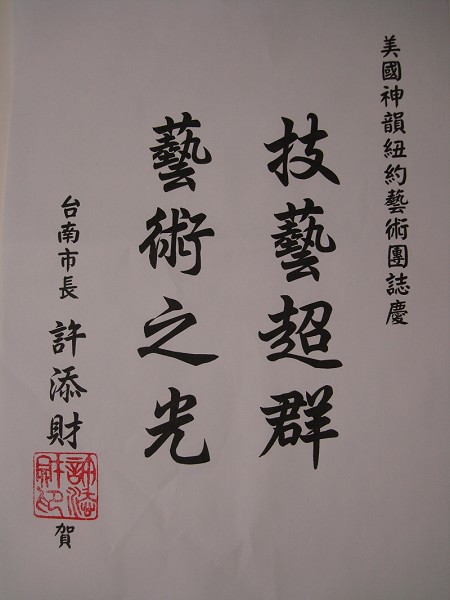 美國神韻紐約藝術團誌慶
技藝超群
藝術之光
台南市長 許添財 賀
許添財印